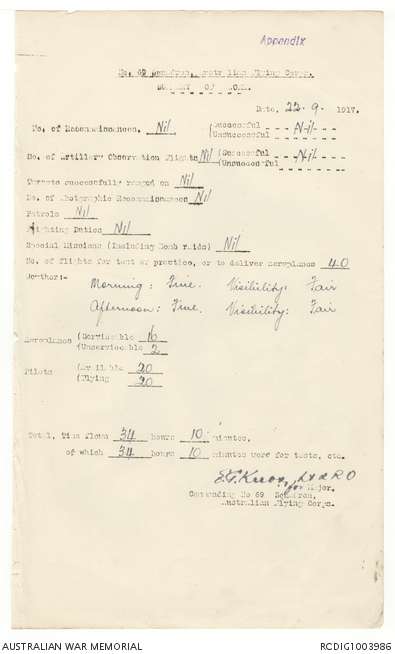 Appendix
No. 69 Squadron, Australian Flying Corps.
SUMMARY OF
Date, 22.9. 1917.
No. of Reconnaissances, Nil (Successful - - Nil - -
(Unsuccessful - - - - -
No. of Artillery Observation Flights Nil (Successful - - Nil - -
(Unsuccessful - - - - -
Targets successfully ranged on Nil
No. of Photographic Reconnaissances Nil
Patrols Nil
Fighting Duties Nil
Special Missions (Including Bomb raids) Nil
No. of flights for test or practice, or to deliver aeroplanes 40
Weather:-
Morning: Fine. Visibility: Fair
Afternoon: Fine. Visibility: Fair
Aeroplanes (Serviceable 16
(Unserviceable 2
Pilots (Available 20
(Flying 20
Total, Time flown 34 hours 10 minutes,
of which 34 hours 10 minutes were for tests, etc.
for Major.
Commanding No 69 Squadron,
Australian Flying Corps.
AUSTRALIAN WAR MEMORIAL
RCDIG1003986